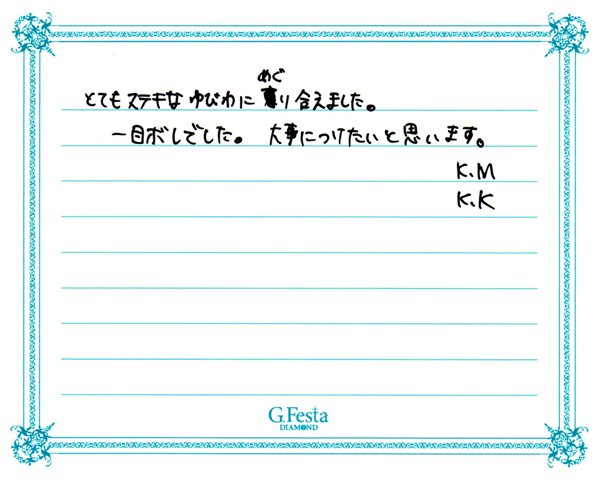 めぐ
とてもステキなゆびわに り合えました。
一目ボレでした。 大事につけたいと思います。
K.M
K.K
G.Festa
DIAMOND